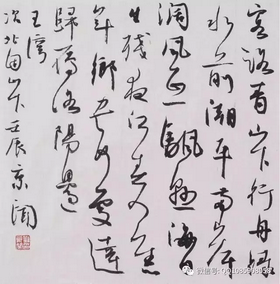 客路青山下行舟緑
水前潮平兩岸
闊風正一帆懸海日
生殘夜江春入舊
年鄉書何處達
歸雁洛陽邊
王灣
次北固山下壬辰
微信号: